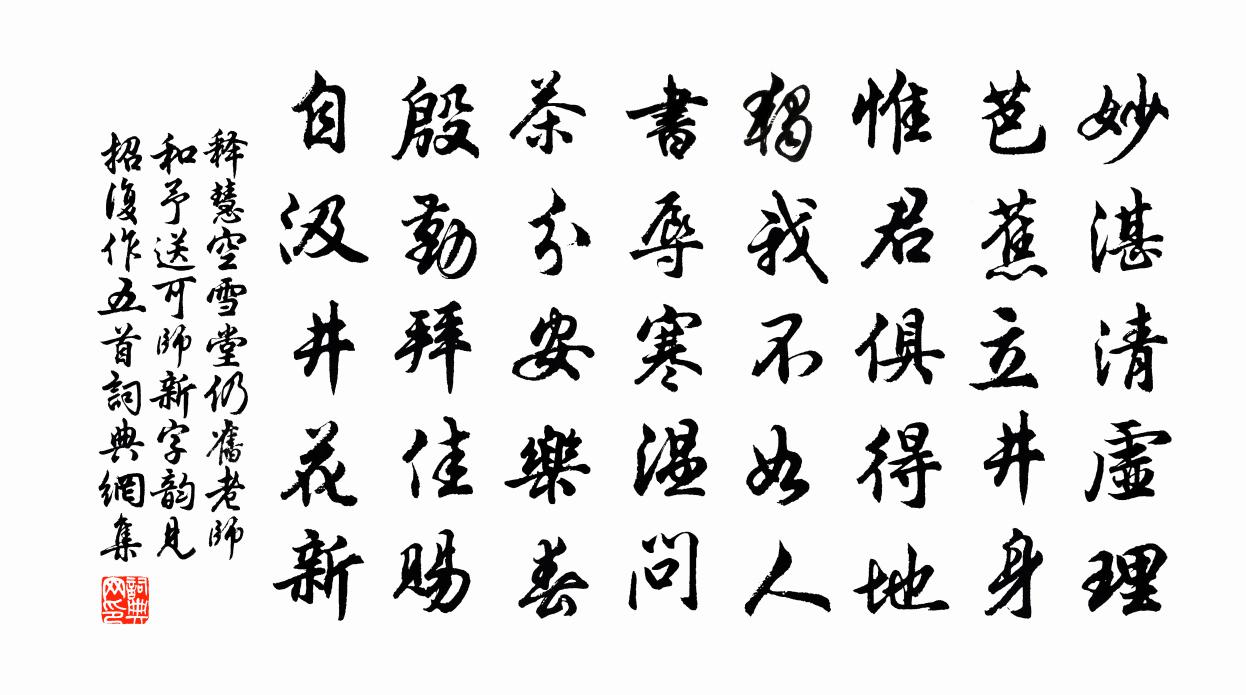 妙湛清虛理
芭蕉立井身
惟君俱得地
獨我不如人
書辱寒溫問
茶分安樂春
殷勤拜佳賜
自汲井花新
释慧空雪堂仍舊老師
和予送可師新字韵見
招復作五首詞典網集
詞典網印